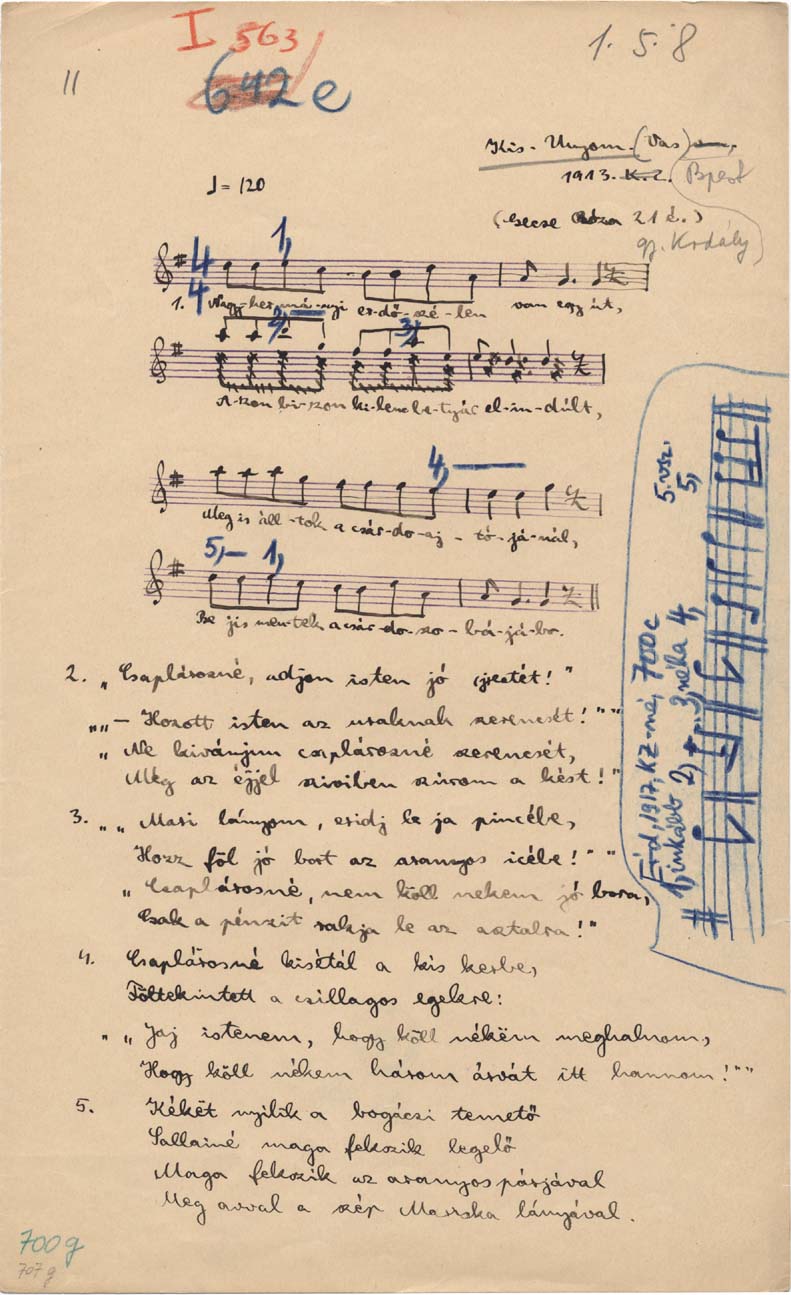 I 563
1. 5. 8
11
642 e
Kis-Unyom. (Vas)
1913. Bpest
♩ = 120
(Gecse Róza 21 é.)
gy. Kodály
4 1,
4
1. Nagy-her-má-nyi er-dő-szé-len van egy út,
2, 3,
A-zon bi-zon ki-lenc be-tyár el-in-dúlt,
4,
Meg is áll-tok a csár-do aj-tó-já-nál,
5, 1,
Be jis men-tek a csár-do szo-bá-já-bo.
2. „Csaplárosné, adjon isten jó jestét!"
„„— Hozott isten az uraknak szerencsét!""
„Ne kivánjun csaplárosné szerencsét,
Még az éjjel sziviben szúrom a kést!"
3. „„Mari lányom, eridj le ja pincébe,
Hozz föl jó bort az aranyos icébe!""
„Csaplárosné, nem köll nekem jó bora,
Csak a pénzit rakja le az asztalra!"
4. Csaplárosné kisétál a kis kerbe,
Föltekintett a csillagos egekre:
„„Jaj istenem, hogy köll nékëm meghalnom,
Hogy köll nékem három árvát itt hannom!""
5. Kékët nyilik a bogácsi temető
Sallainé maga fekszik legelő
Maga fekszik az aranyos párjával
Meg avval a szép Mariska lányával.
Érd, 1917, KZ-né, 700c
inkább 2, 3, néha 4,
5. vsz.
5,
700 g
707 g